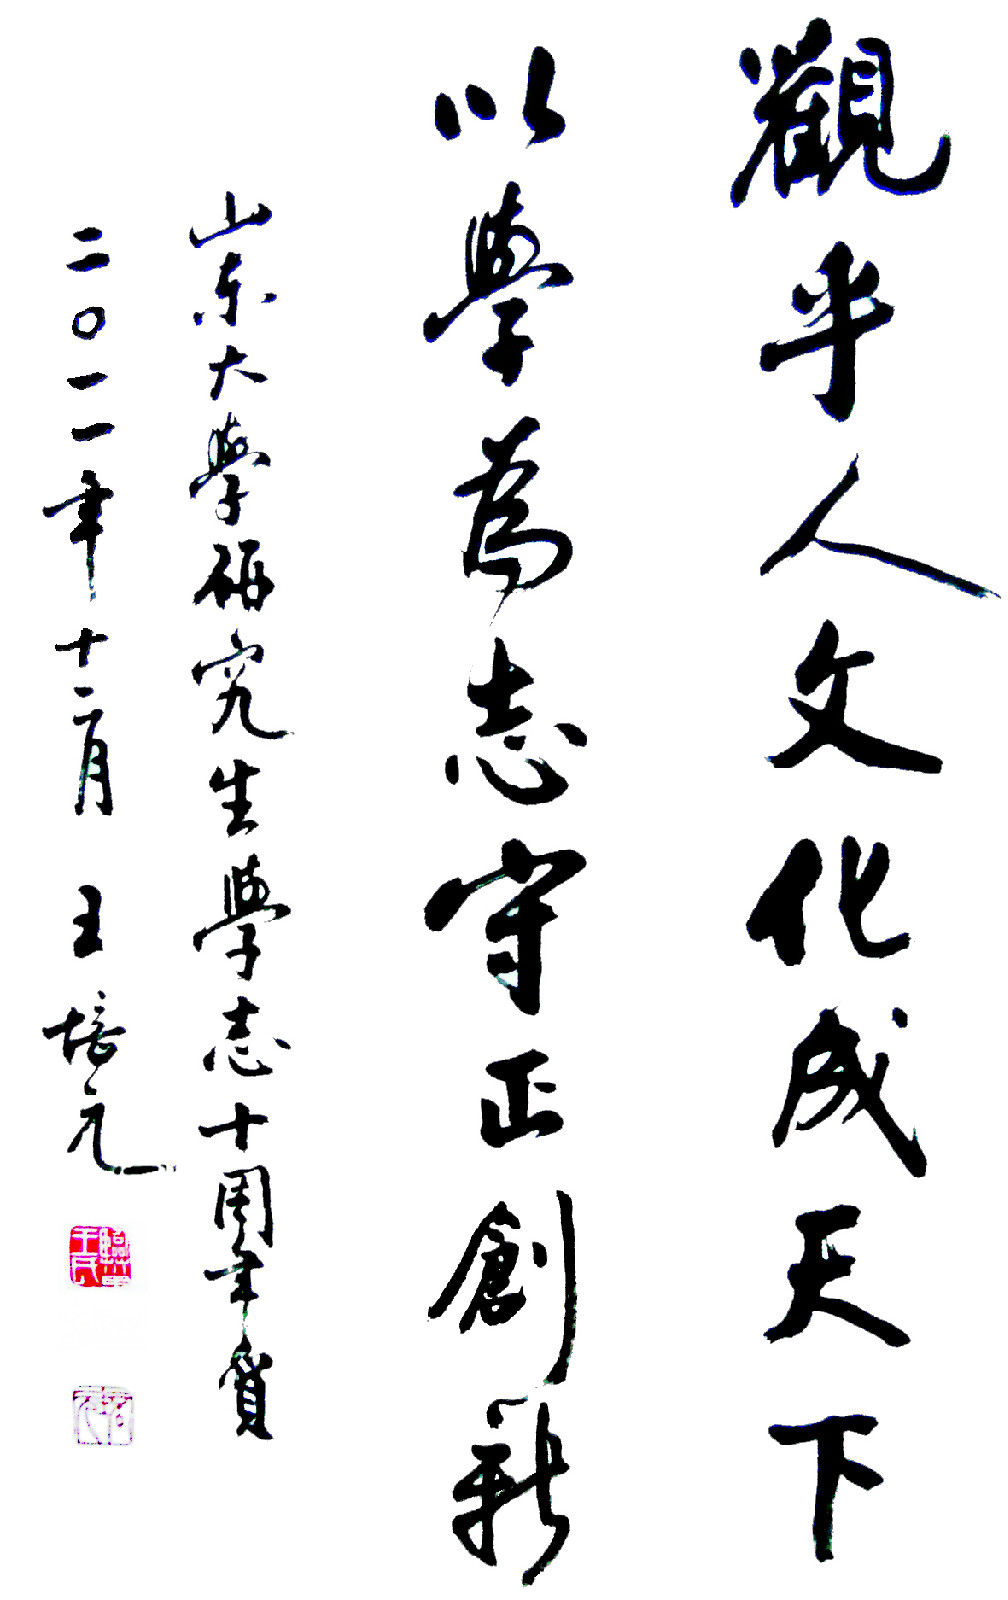 觀乎人文化成天下
以學為志守正創新
山东大學研究生學志十周年賀
二〇一一年十二月 王培元